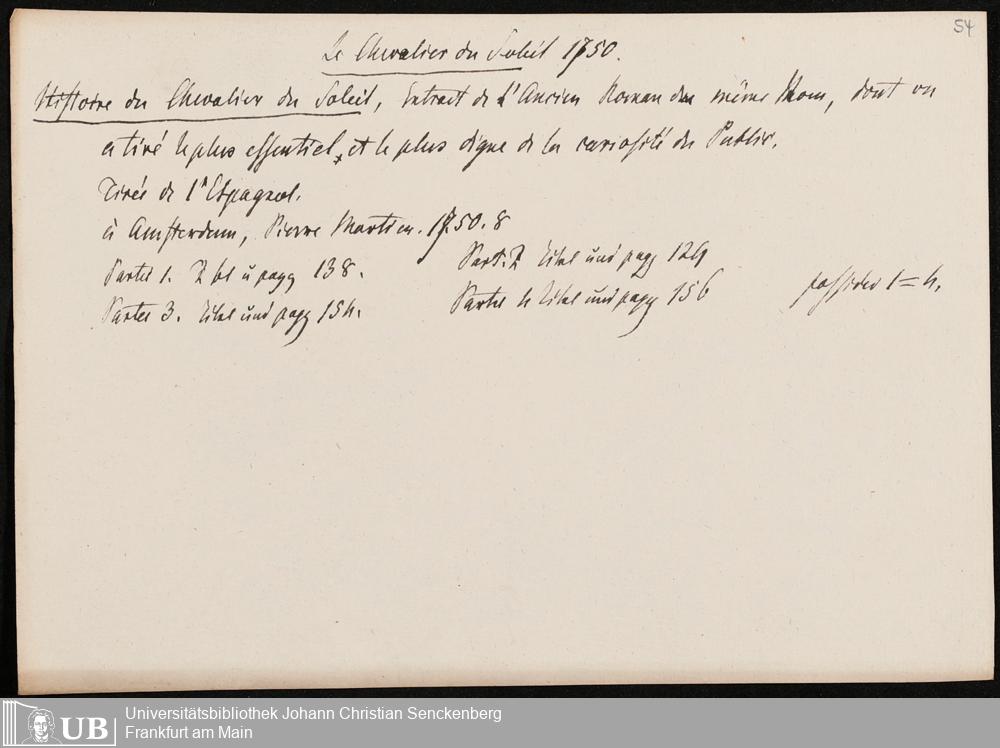 54
Le Chevalier du Soleil 1750.
Histoire du Chevalier du Soleil, Extrait de L'Ancien Roman du même Nom, dont on
a tiré le plus essentiel, et le plus digne de la curiosité du Public.
Tirée de l'Espagnol.
à Amsterdam, Pierre Mortier. 1750. 8
Partie 1. 2 bl u pagg 138. Part. 2 Titel und pagg 129
Partie 3. Titel und pagg 154. Partie 4 Titel und pagg 156 1=4.
UB Universitätsbibliothek Johann Christian Senckenberg
Frankfurt am Main